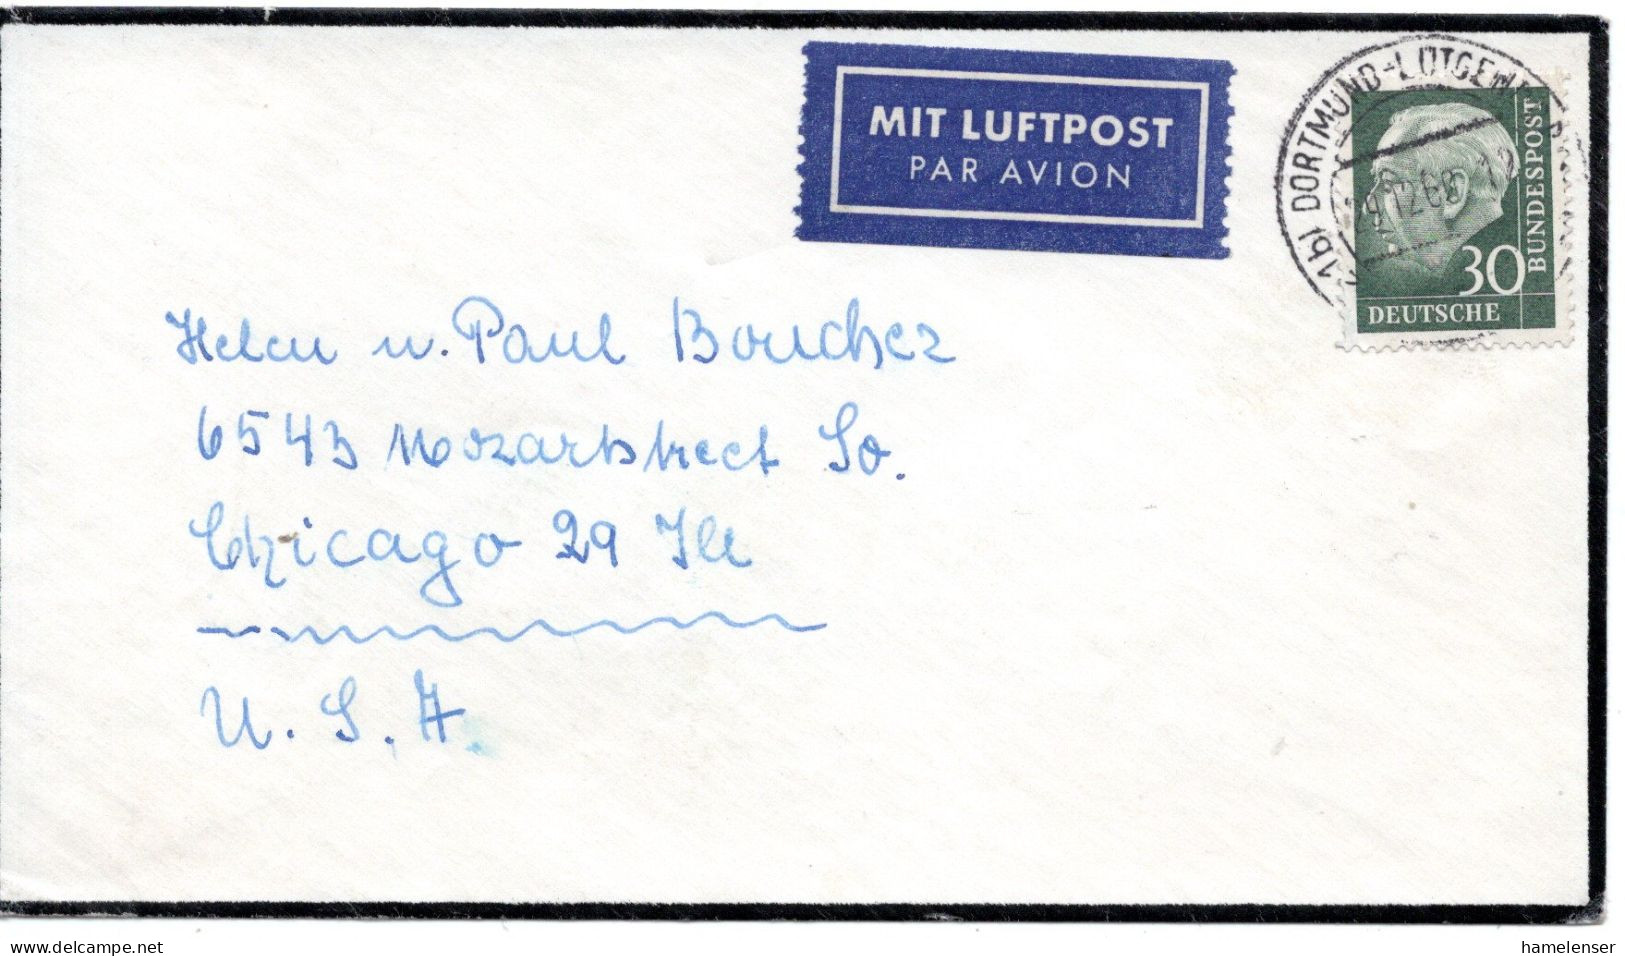 MIT LUFTPOST
PAR AVION
21b DORTMUND-LÜTGEN
29.12.60
30
DEUTSCHE
BUNDESPOST
Helen u. Paul Boucher
6543 Mozartstreet So.
Chicago 29 Ill
U. S. A.
delcampe.net
hamelenser